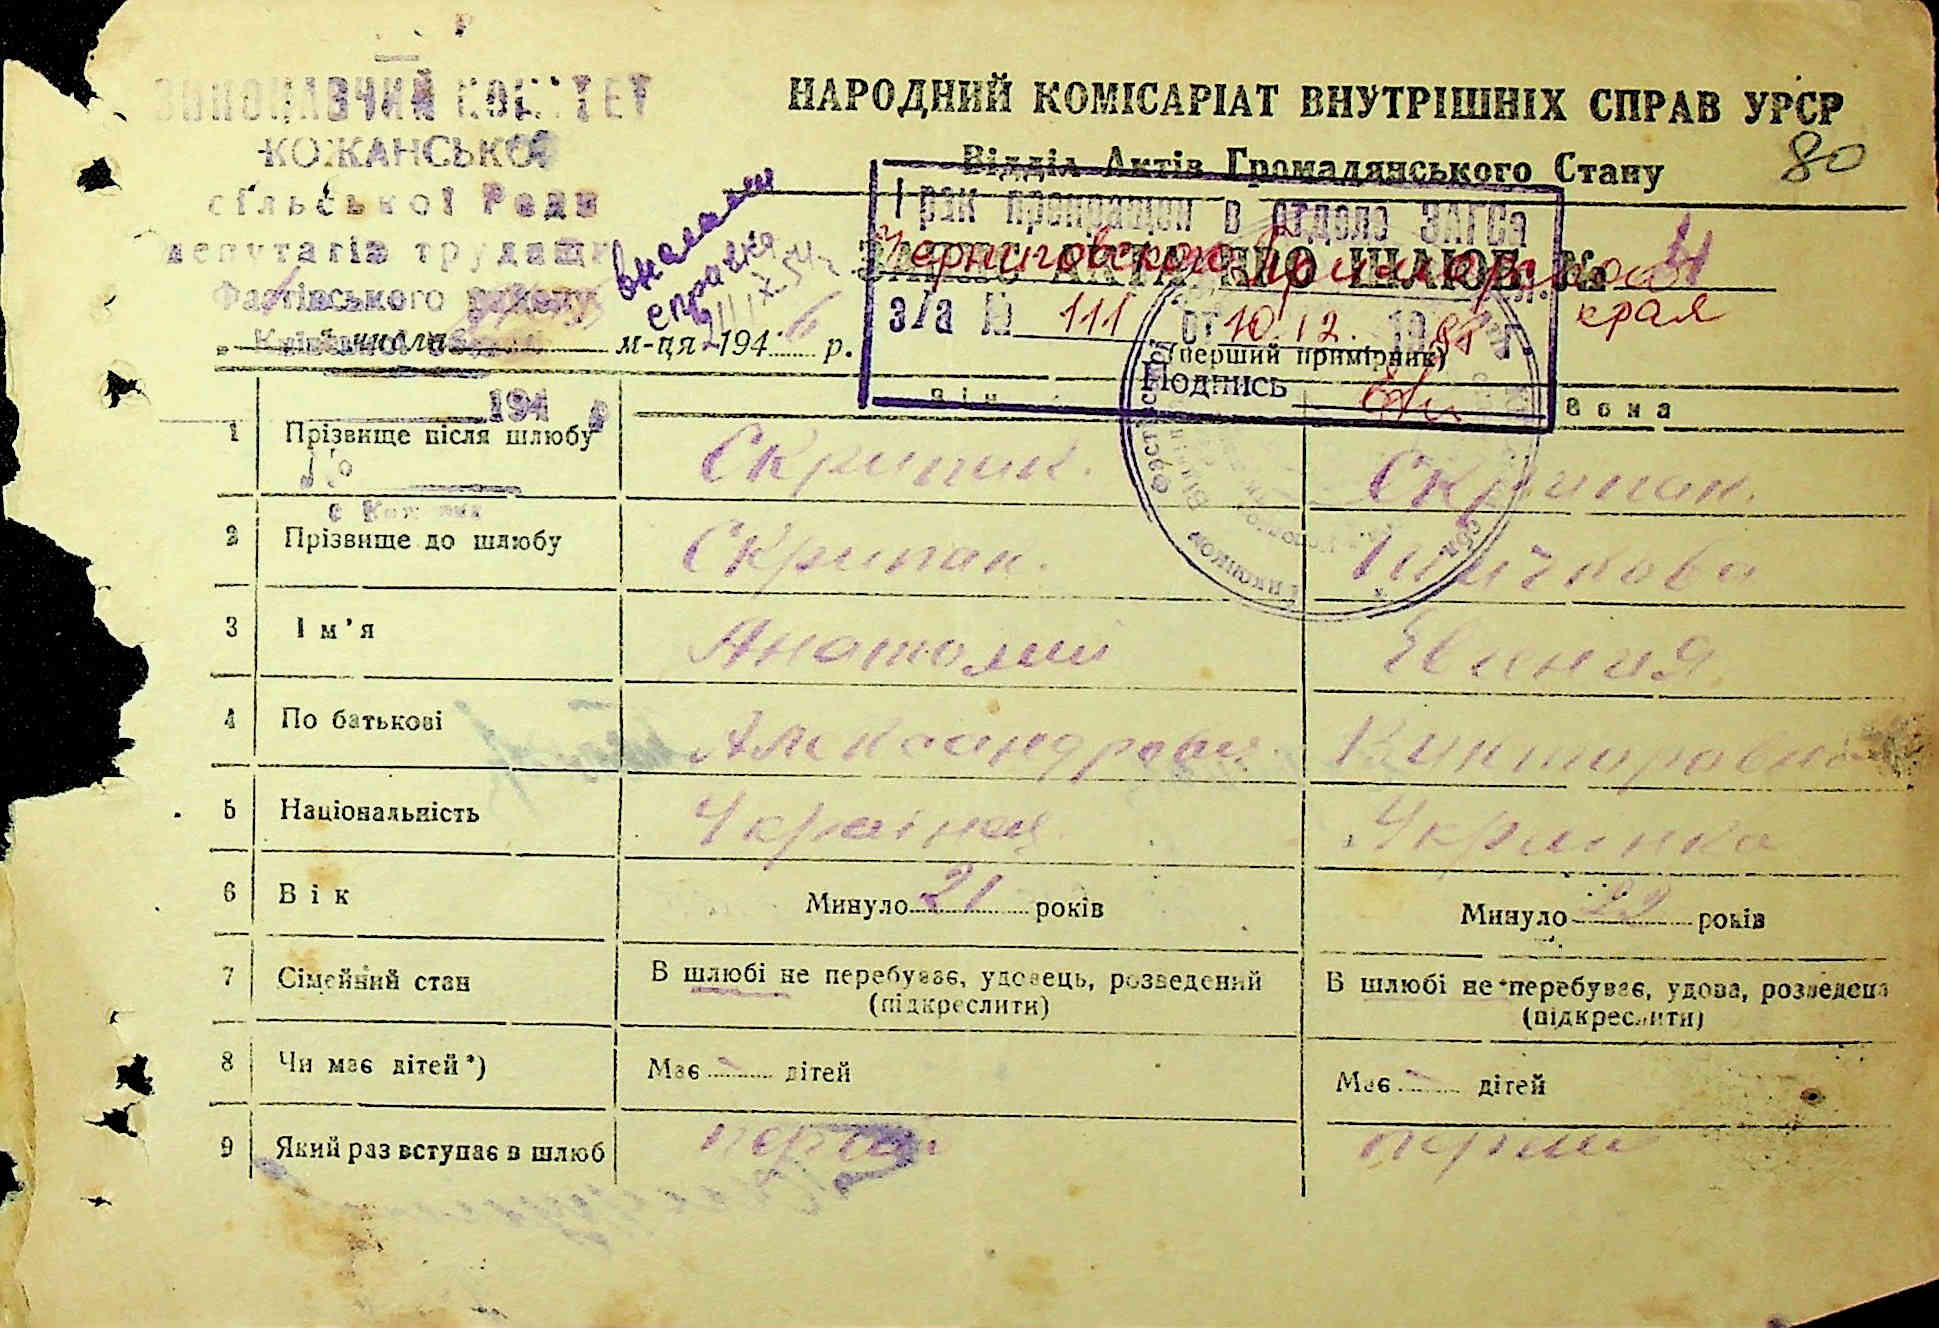 ВИКОНАВЧИЙ КОМІТЕТ
КОЖАНСЬКОЇ
сільської Ради
депутатів трудящих
Фастівського району
194 р
НАРОДНИЙ КОМІСАРІАТ ВНУТРІШНІХ СПРАВ УРСР
Відділ Актів Громадянського Стану
80
ЗАПИС АКТА ПРО ШЛЮБ № 4
числа м-ця 194 р.
(перший примірник)
Брак прекращен в отделе ЗАГСа
Черниговского Приморского
края
з/а № 111 от 10.12. 1981 г
Подпись
справка
він вона
1 Прізвище після шлюбу Скрипак. Скрипак.
2 Прізвище до шлюбу Скрипак.
3 Ім'я Анатолий Евгения
4 По батькові Александрович Викторовна
5 Національність Українец Українка
6 Вік Минуло 21 років Минуло 22 років
7 Сімейний стан В шлюбі не перебуває, удовець, розведений (підкреслити) В шлюбі не перебуває, удова, розведена (підкреслити)
8 Чи має дітей*) Має - дітей Має - дітей
9 Який раз вступає в шлюб перший перший